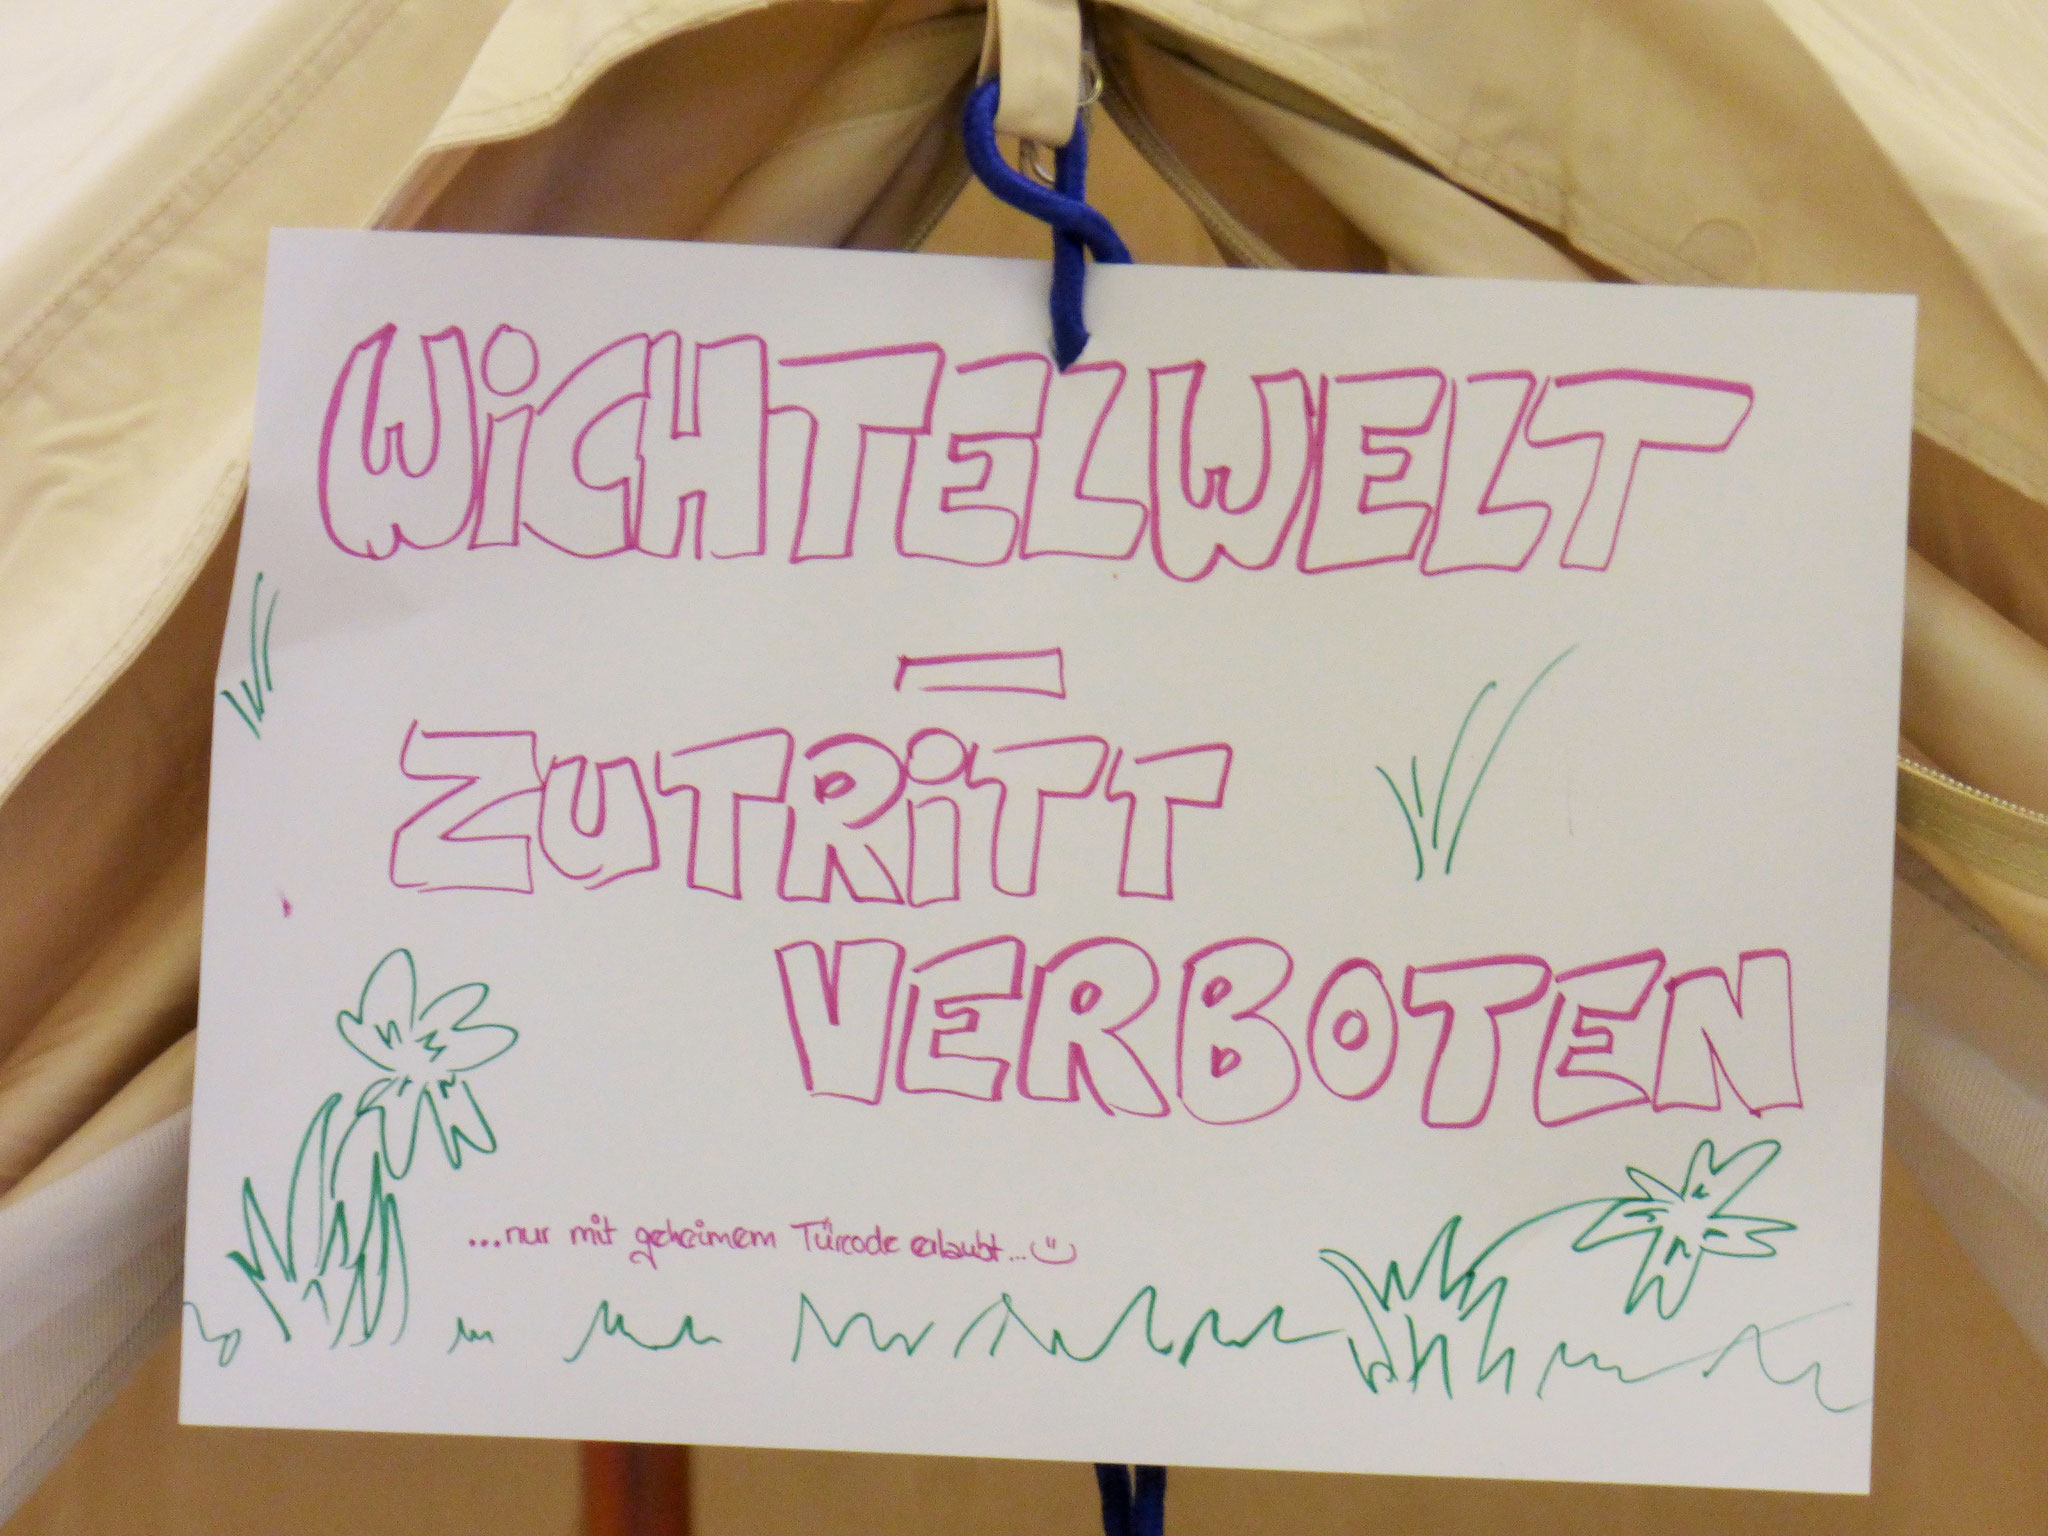 WiCHTELWELT
–
ZUTRiTT
VERBOTEN
...nur mit geheimem Türcode erlaubt...